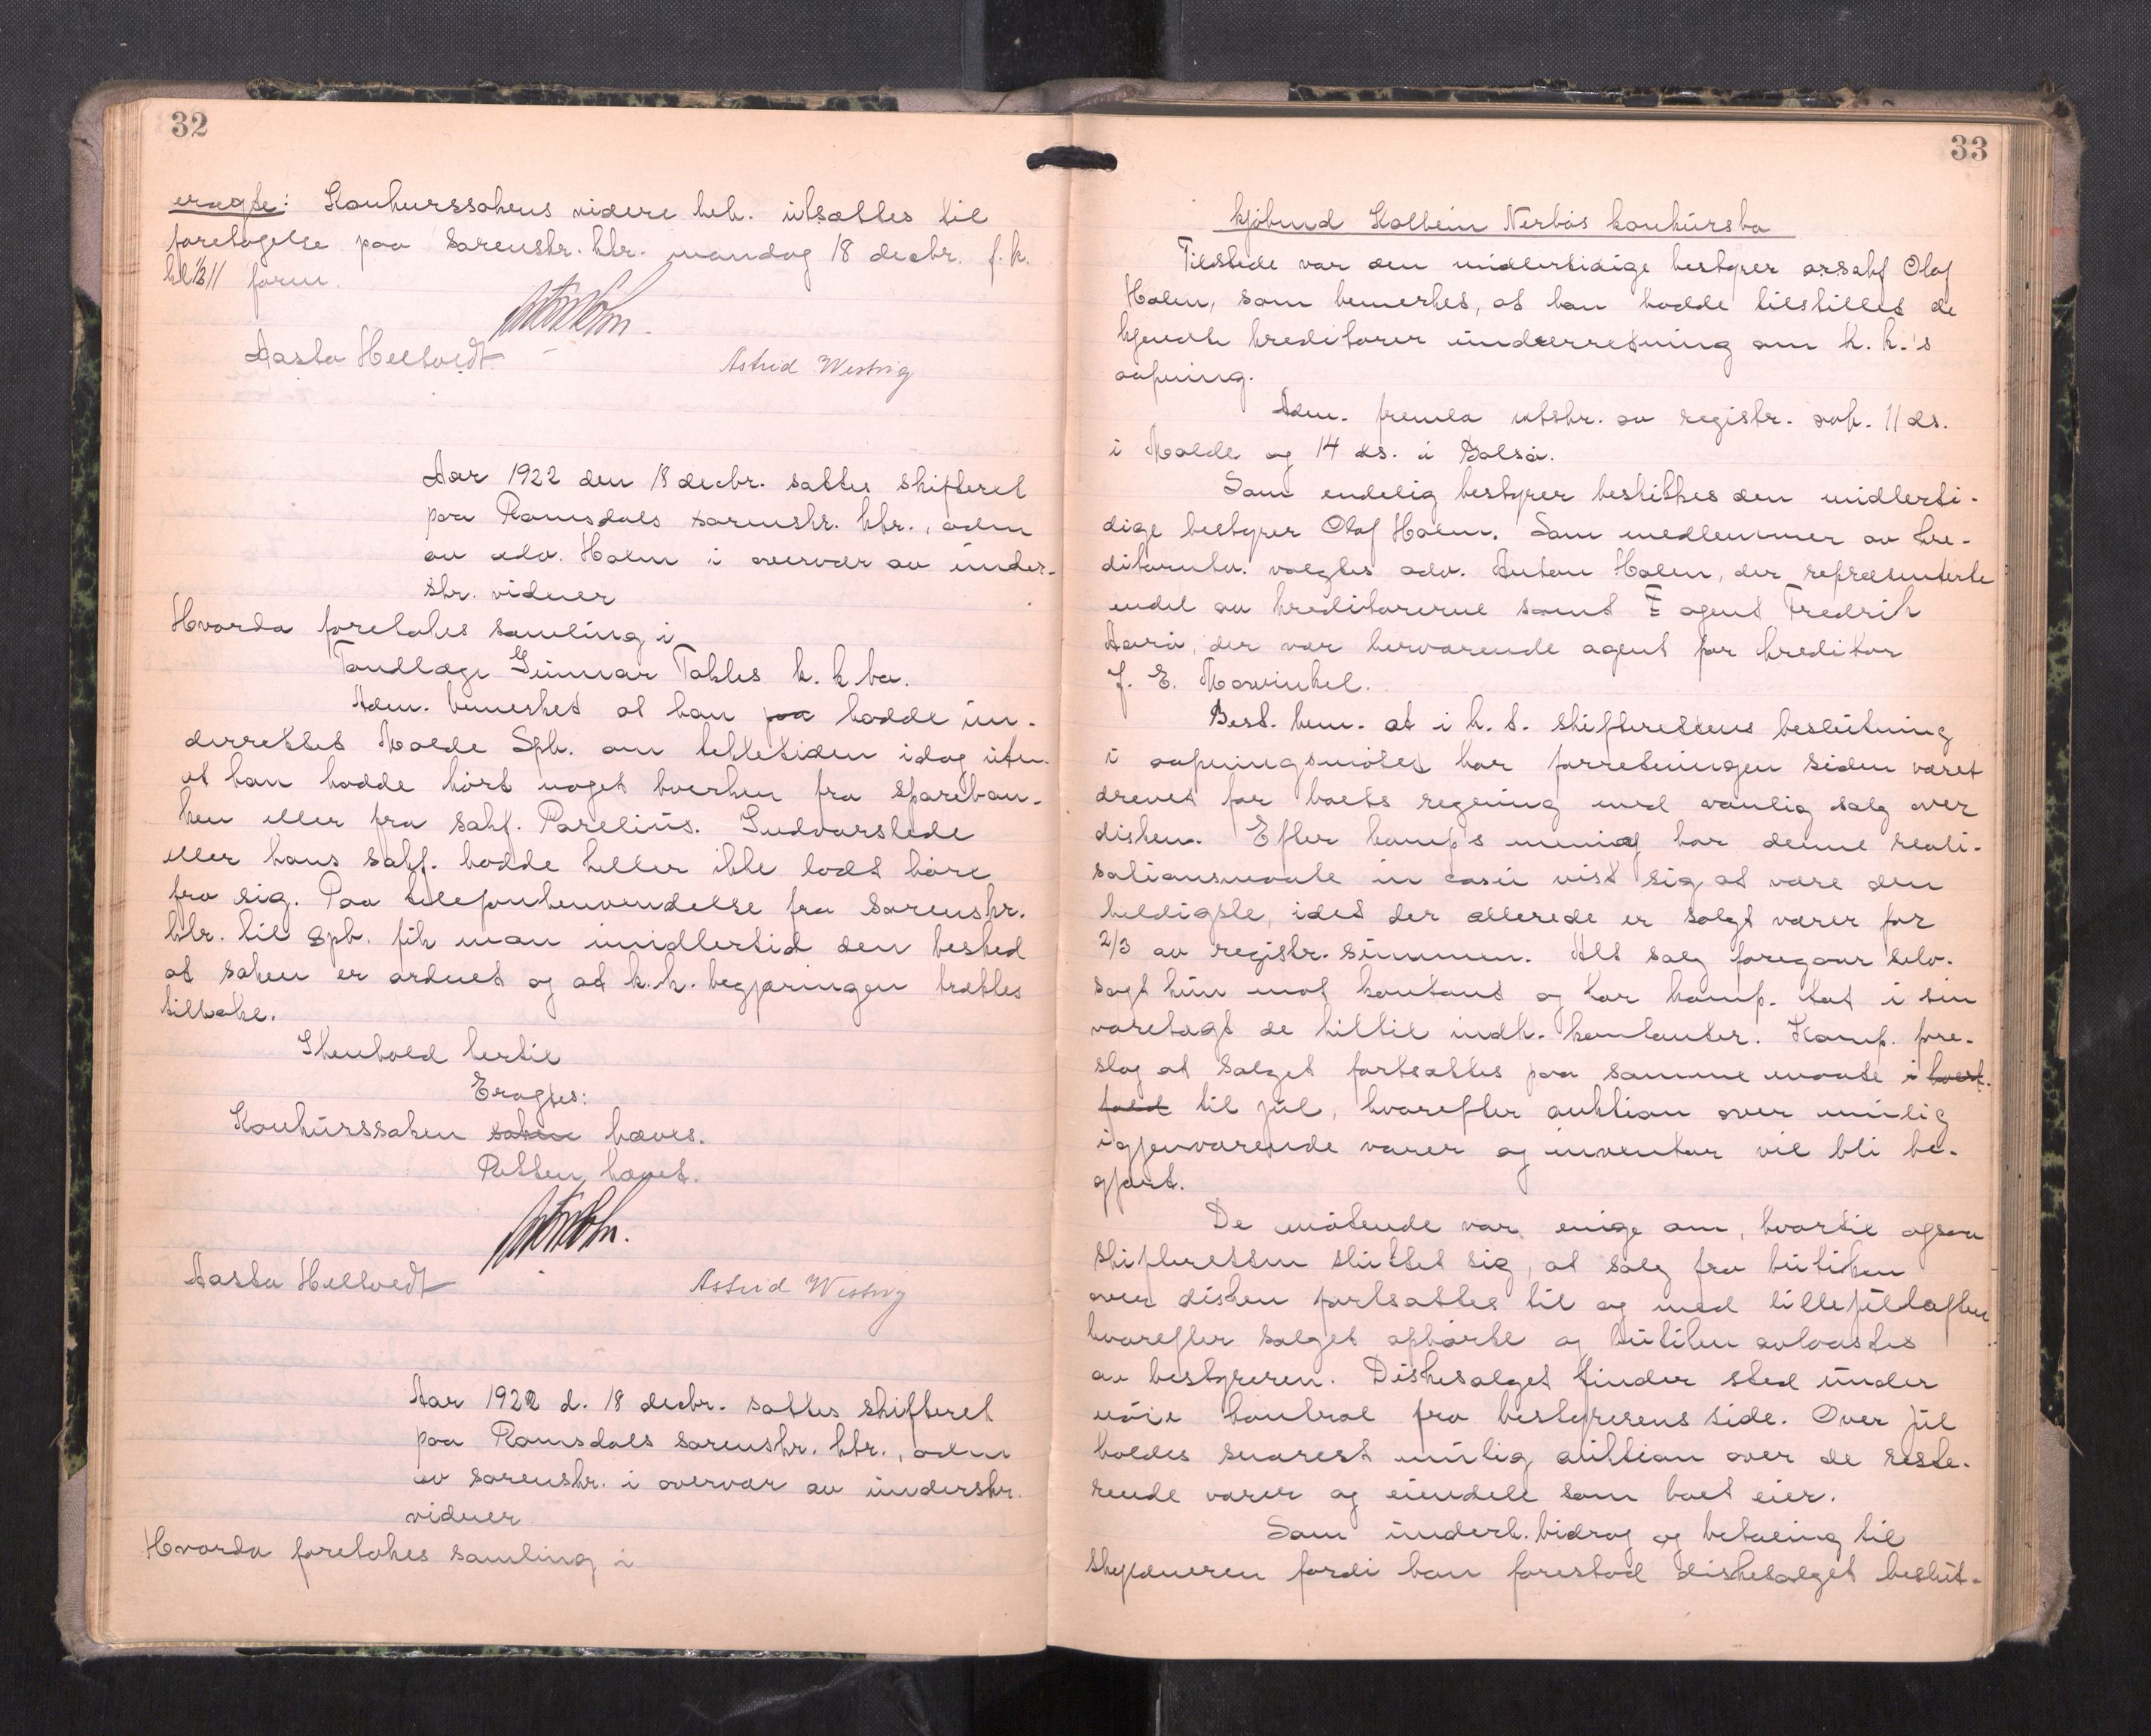 32
eragtes: Konkurssakens videre beh. utsættes til
foretagelse paa sorenskr. ktr. mandag 18 decbr. f. k.
kl 1/2 11 form.
Aasta Heltvedt
Astrid Westvig
Aar 1922 den 18 decbr. sattes skifteret
paa Romsdals sorenskr. ktr., adm
av adv. Holm i overvær av under-
skr. vidner
Hvorda foretokes samling i
Tandlæge Gunnar Takles k. k. bo.
Adm. bemerket at han paa hadde un-
derrettet Molde Spb. om tektetiden idag uten
at han hadde hørt noget hverken fra spareban-
ken eller fra sakf. Parelius. Indvarslede
eller hans sakf. hadde heller ikke ladt høre
fra sig. Paa telefonhenvendelse fra sorenskr.
ktr. til spb. fik man imidlertid den besked
at saken er ordnet og at k.k. begjæringen trækkes
tilbake.
I henhold hertil
Eragtes:
Konkurssaken saken hæves.
Retten hævet.
Aasta Heltvedt
Astrid Westvig
Aar 1922 d. 18 decbr. sattes skifteret
paa Romsdals sorenskr. ktr., adm
av sorenskr. i overvær av underskr.
vidner
Hvorda foretokes samling i
33
Kjøbmd Kolbein Nerbøs konkursbo
Tilstede var den midlertidige bestyrer o.r.sakf Olaf
Holm, som bemerket, at han hadde tilstillet de
kjendte kreditorer underretning om k. k.'s
aapning.
Adm. fremla utskr. av registr. avh. 11 ds.
i Molde og 14 ds. i Bolsø.
Som endelig bestyrer beskikkes den midlerti-
dige bestyrer Olaf Holm. Som medlemmer av kre-
ditorutv. valgtes adv. Anton Holen, der repræsenterte
endel av kreditorerne samt F agent Fredrik
Aarø, der var herværende agent for kreditor
J. E. Mowinkel.
Best. bem. at i h. t. skifterettens beslutning
i aapningsmøtet har forretningen siden været
drevet for boets regning med vanlig salg over
disken. Efter komp's mening har denne reali-
sationsmaate in casu vist sig at være den
heldigste, idet der allerede er solgt varer for
2/3 av registr. summen. Alt salg foregaar selv-
sagt kun mot kontant og har komp. tat i sin
varetægt de hittil indk. kontanter. Komp. fore-
slog at salget fortsættes paa samme maate i hvert-
fald til jul, hvorefter auktion over mulig
igjenværende varer og inventar vil bli be-
gjært.
De møtende var enige om, hvortil ogsaa
skifteretten sluttet sig, at salg fra butiken
over disken fortsattes til og med lillejulaften
hvorefter salget ophørte og butiken avlaastes
av bestyreren. Diskesalget finder sted under
nøie kontrol fra bestyrerens side. Over jul
holdes snarest mulig auktion over de reste-
rende varer og eiendele som boet eier.
Som underh. bidrag og betaling til
skyldneren fordi han forestod diskesalget beslut-